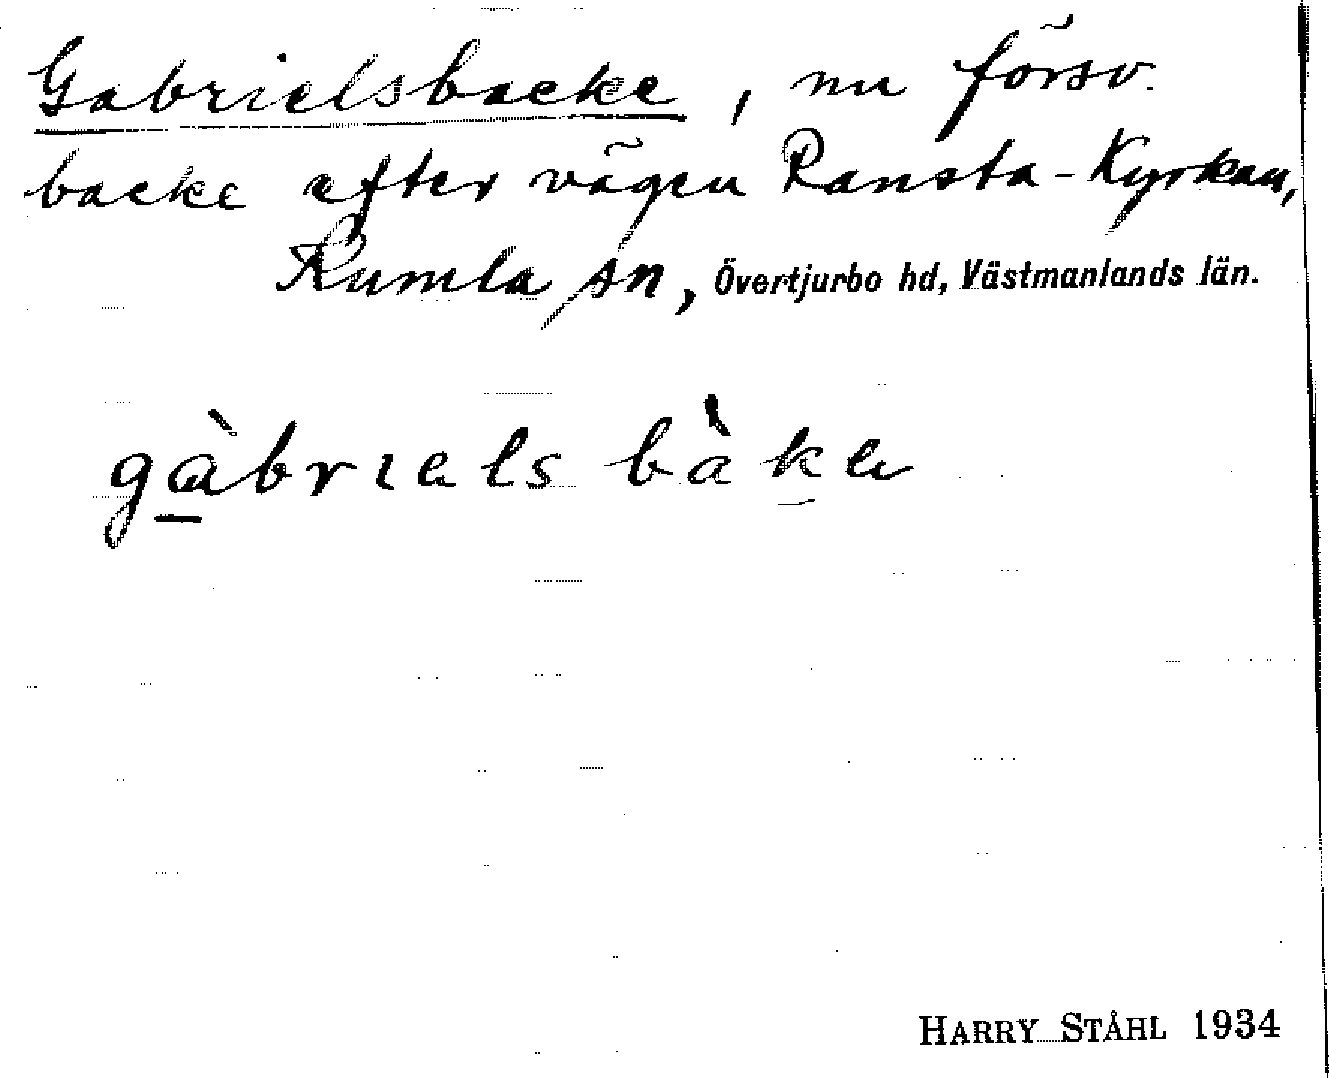 Gabrielsbacke, nu försv.
backe efter vägen Ransta-Kyrkan,
Kumla sn, Övertjurbo hd, Västmanlands län.
gàbrıels bàke
HARRY STÅHL 1934